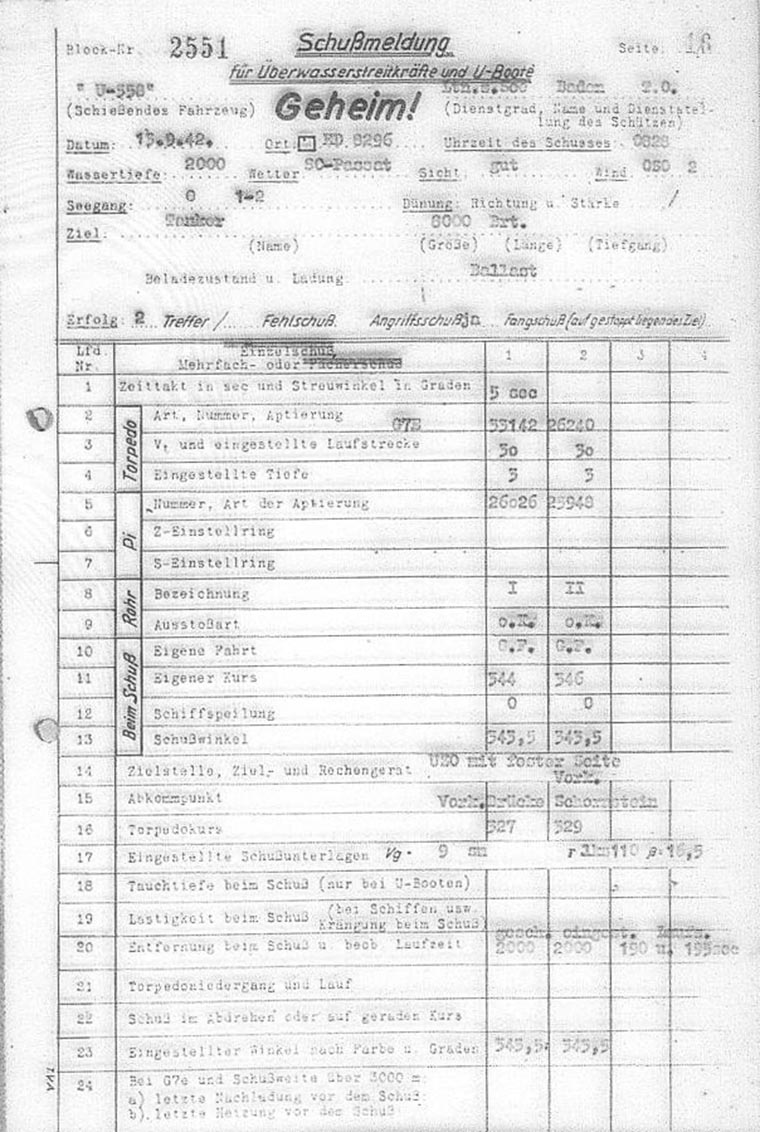 Block-Nr 2551 Schußmeldung Seite: 16
für Überwasserstreitkräfte und U-Boote
" U-558" Geheim! Ltn.z.See Baden T.O.
(Schießendes Fahrzeug) (Dienstgrad, Name und Dienststel-
lung des Schützen)
Datum: 13.9.42. Ort: ED 8296 Uhrzeit des Schusses: 0828
Wassertiefe: 2000 Wetter SO-Passat Sicht gut Wind 050 2
Seegang: 0 1-2 Dünung: Richtung u. Stärke /
Ziel: Tanker 8000 Brt.
(Name) (Größe) (Länge) (Tiefgang)
Beladezustand u. Ladung Ballast
Erfolg: 2 Treffer / Fehlschuß. Angriffsschuß ja Fangschuß (auf gestoppt liegendes Ziel)
Lfd. Nr. Einzelschuß, Mehrfach- oder Fächerschuß 1 2 3 4
1 Zeittakt in sec und Streuwinkel in Graden 5 sec
Torpedo
2 Art, Nummer, Aptierung G7E 33142 26240
3 Vt und eingestellte Laufstrecke 30 30
4 Eingestellte Tiefe 3 3
Pi
5 Nummer, Art der Aptierung 26026 25948
6 Z-Einstellring
7 S-Einstellring
Rohr
8 Bezeichnung I II
9 Ausstoßart o.K. o.K.
Beim Schuß
10 Eigene Fahrt G.F. G.F.
11 Eigener Kurs 344 346
12 Schiffspeilung 0 0
13 Schußwinkel 343,5 343,5
14 Zielstelle, Ziel- und Rechengerät UZO mit fester Seite
Vork.
15 Abkommpunkt Vork.Brücke Schornstein
16 Torpedokurs 327 329
17 Eingestellte Schußunterlagen Vg. 9 sm r 110 β 16,5
18 Tauchtiefe beim Schuß (nur bei U-Booten)
19 Lastigkeit beim Schuß (bei Schiffen usw. Krängung beim Schuß)
gesch. eingest. Laufz.
20 Entfernung beim Schuß u. beob Laufzeit 2000 2000 190 u. 195sec
21 Torpedoniedergang und Lauf
22 Schuß im Abdrehen oder auf geraden Kurs
23 Eingestellter Winkel nach Farbe u. Graden 343,5 343,5
24 Bei G7e und Schußweite über 3000 m:
a) letzte Nachladung vor dem Schuß:
b) letzte Heizung vor dem Schuß